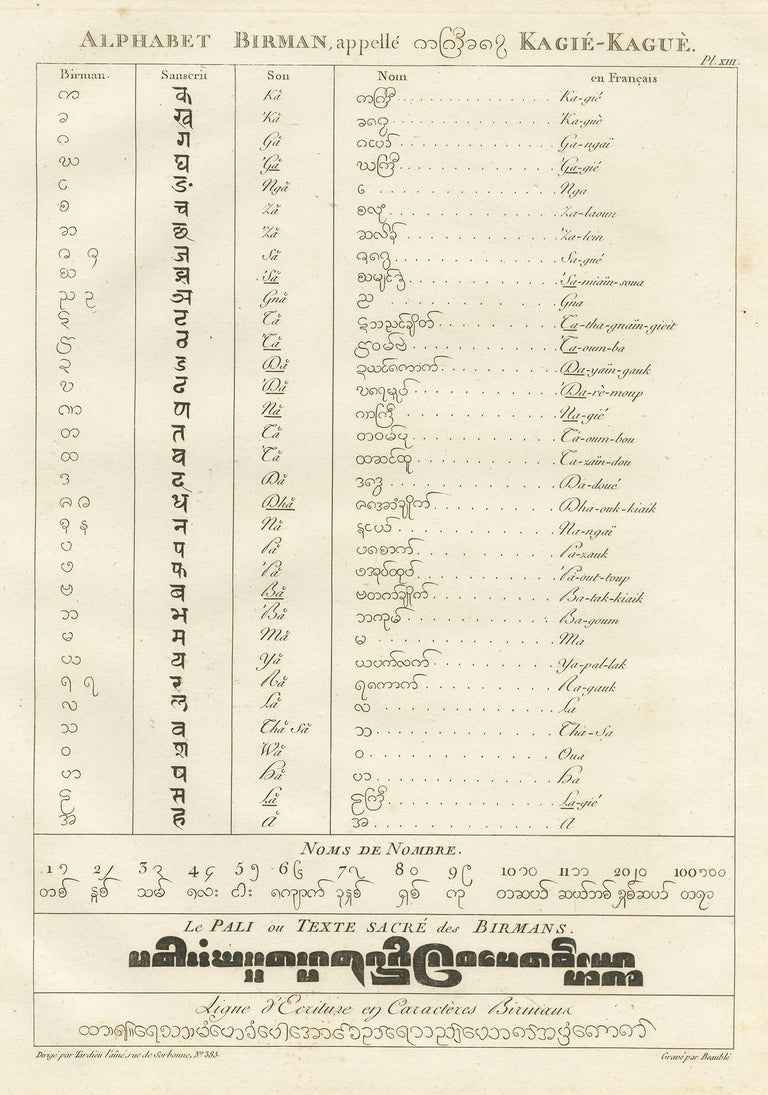 ALPHABET BIRMAN, appellé ကကြီးခခွေ KAGIÉ-KAGUÈ.
Pl. XIII.
Birman. Sanscrit Son Nom en Français
က क Kă ကကြီ Ka-gié
ခ ख 'Kă ခခွေ 'Ka-guè
ဂ ग Gă ဂငယ် Ga-ngaï
ဃ घ 'Gă ဃကြီ 'Ga-gié
င ङ Ngă င Nga
စ च Ză စလုံ Za-laoun
ဆ छ 'Ză ဆလိန် 'Za-lein
ဇ ဇ ज Să ဇခွေ Sa-gué
ဈ झ 'Să 'Sa-miaïn-soua
ည ဉ ञ Gnă ည Gna
ဋ ट Tă Ta-tha-gnaïn-gieit
ဌ ठ 'Tă ဌဝမ်ဗဲ 'Ta-oum-ba
ဍ ड Dă ဍယင်ကောက် Da-yaïn-gauk
ဎ ढ 'Dă ဎရေမှုပ် 'Da-rè-moup
ဏ ण Nă ဏကြီ Na-gié
တ त Tă တဝမ်ပု Tă-oum-bou
ထ थ 'Tă ထဆင်ထူ Ta-zaïn-dou
ဒ द Dă ဒထွေ Da-doué
ဓ ဓ ध Dhă Dha-ouk-kiaik
န န न Nă နငယ် Na-ngaï
ပ प Pă ပစောက် Pa-zauk
ဖ फ 'Pă ဖအုပ်ထုပ် 'Pa-out-toup
ဗ ब Bă ဗတက်ချိုက် Ba-tak-kiaik
ဘ भ 'Bă ဘကုမ် Ba-goum
မ म Mă မ Ma
ယ य Yă ယပက်လက် Ya-pal-lak
ရ ရ र Ră ရကောက် Ra-gauk
လ ल Lă လ La
သ व Thă Să သ Thă-Sa
ဝ श Wă ဝ Oua
ဟ ष Hă ဟ Ha
ဠ स Lă ဠကြီ La-gié
အ ह Ă အ A
NOMS DE NOMBRE.
1 ၁ 2 ၂ 3 ၃ 4 ၄ 5 ၅ 6 ၆ 7 ၇ 8 ၀ 9 ၉ 10 ၁၀ 11 ၁၁ 20 ၂၀ 100 ၁၀၀
တစ် နှစ် သမ် လေး ငါး ခြောက် ခုနှစ် ရှစ် ကု တဆယ် ဆယ်တစ် နှစ်ဆယ် တရာ
LE PALI ou TEXTE SACRÉ des BIRMANS.
Ligne d'Ecriture en Caractères Birmans
Dirigé par Tardieu l'ainé, rue de Sorbonne, N° 385.
Gravé par Beaublé.